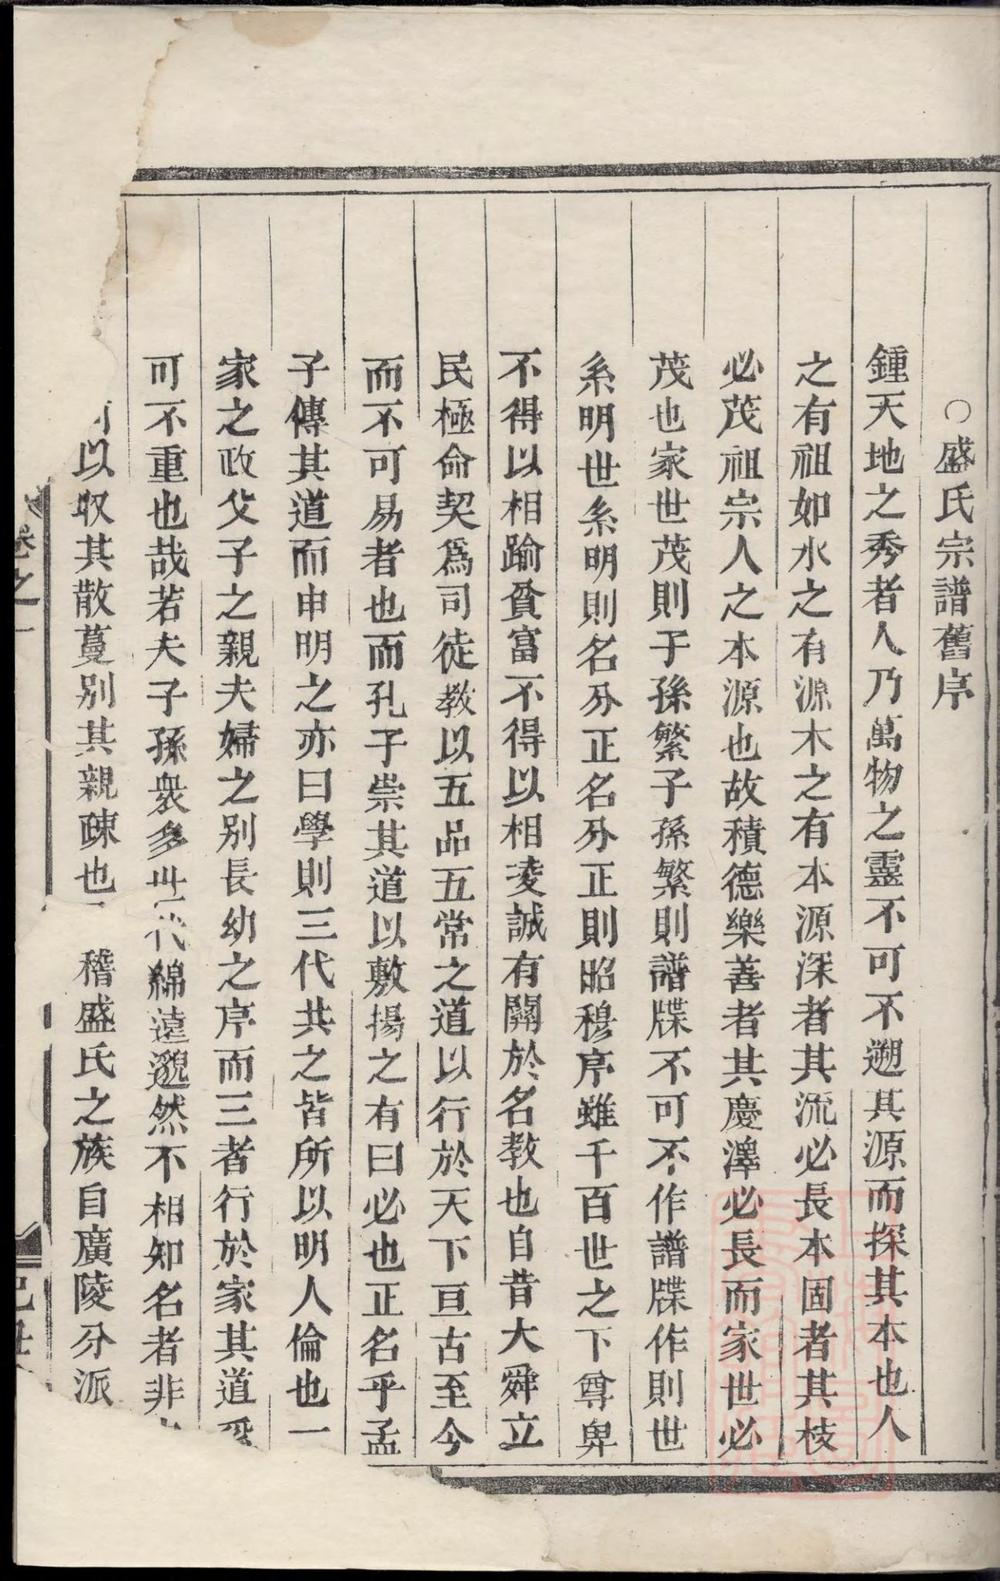 ○盛氏宗譜舊序
鍾天地之秀者人乃萬物之靈不可不遡其源而探其本也人
之有祖如水之有源木之有本源深者其流必長本固者其枝
必茂祖宗人之本源也故積德樂善者其慶澤必長而家世必
茂也家世茂則子孫繁子孫繁則譜牒不可不作譜牒作則世
系明世系明則名分正名分正則昭穆序雖千百世之下尊卑
不得以相踰貧富不得以相凌誠有關於名教也自昔大舜立
民極命契爲司徒教以五品五常之道以行於天下亘古至今
而不可易者也而孔子崇其道以敷揚之有曰必也正名乎孟
子傳其道而申明之亦曰學則三代共之皆所以明人倫也一
家之政父子之親夫婦之別長幼之序而三者行於家其道
可不重也哉若夫子孫衆多世代綿遠邈然不相知名者非
以收其散蔓別其親疎也 稽盛氏之族自廣陵分派
卷之一